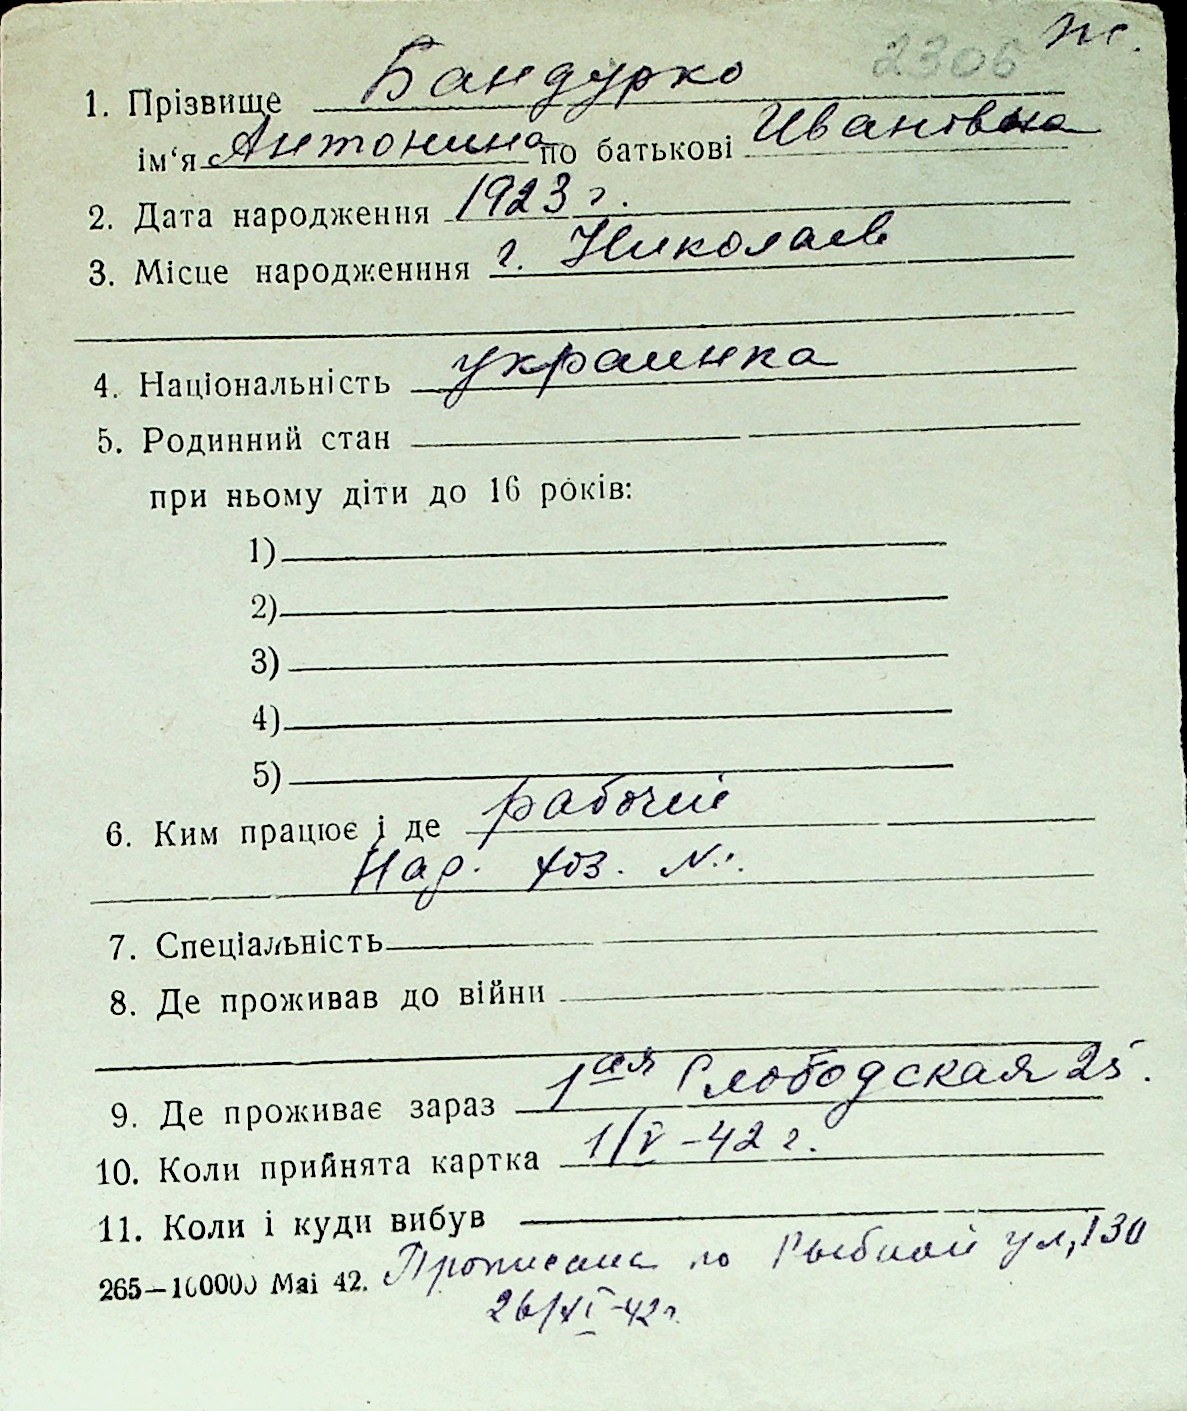 2306 ж.
1. Прізвище Бандурко
ім‘я Антонина по батькові Ивановна
2. Дата народження 1923 г.
3. Місце народженння г. Николаев
4. Національність украинка
5. Родинний стан
при ньому діти до 16 років:
1)
2)
3)
4)
5)
6. Ким працює і де рабочий
Нар. хоз.
7. Спеціальність
8. Де проживав до війни
9. Де проживає зараз 1ая Слободская 25.
10. Коли прийнята картка 1/V-42 г.
11. Коли і куди вибув
265—100000 Mai 42. Прописана по Рыбной ул, 130
26/VI-42г.